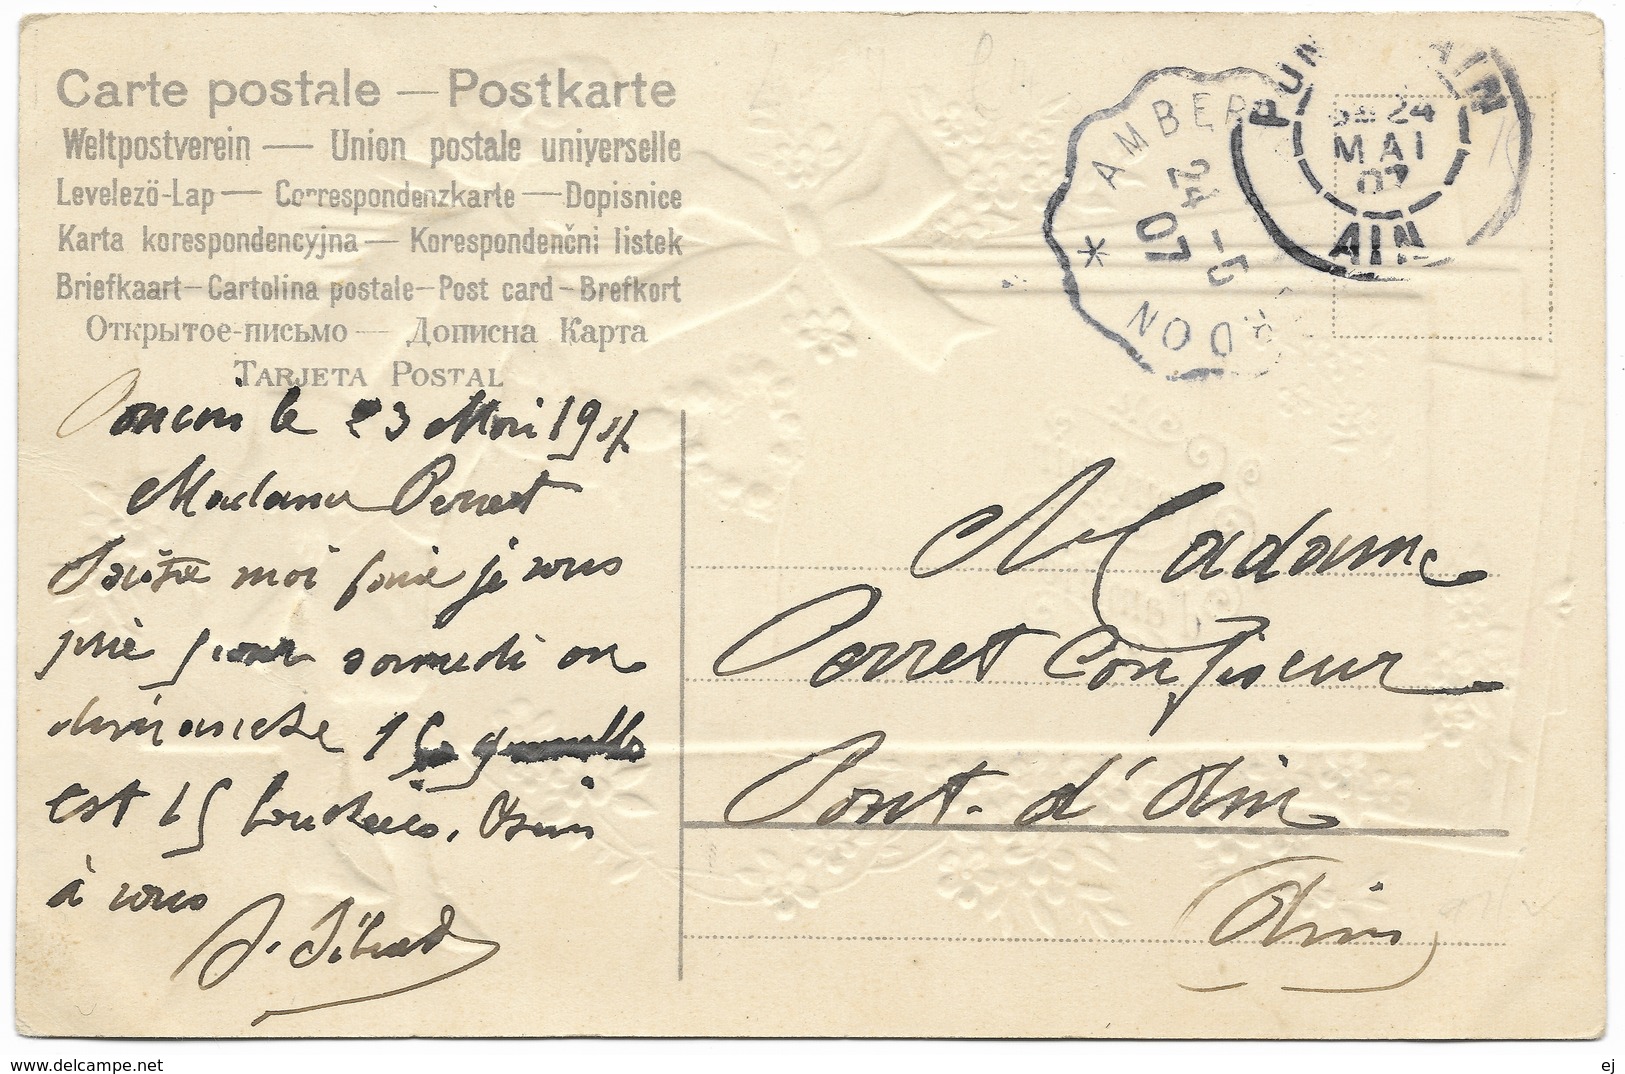 Carte postale — Postkarte
Weltpostverein — Union postale universelle
Levelező-Lap — Correspondenzkarte — Dopisnice
Karta korespondencyjna — Korespondenční listek
Briefkaart — Cartolina postale — Post card — Brefkort
Открытое-письмо — Дописна Карта
TARJETA POSTAL
le 23 Mai 1907
Madame Perret
moi je vous
prie pour samedi ou
dimanche 15
est 15 bouchées.
à vous
AMBER
24 -5
07
*
RDON
PON AIN
24
MAI
07
AIN
Madame
Perret Confiseur
Pont-d'Ain
Ain
www.delcampe.net
ej